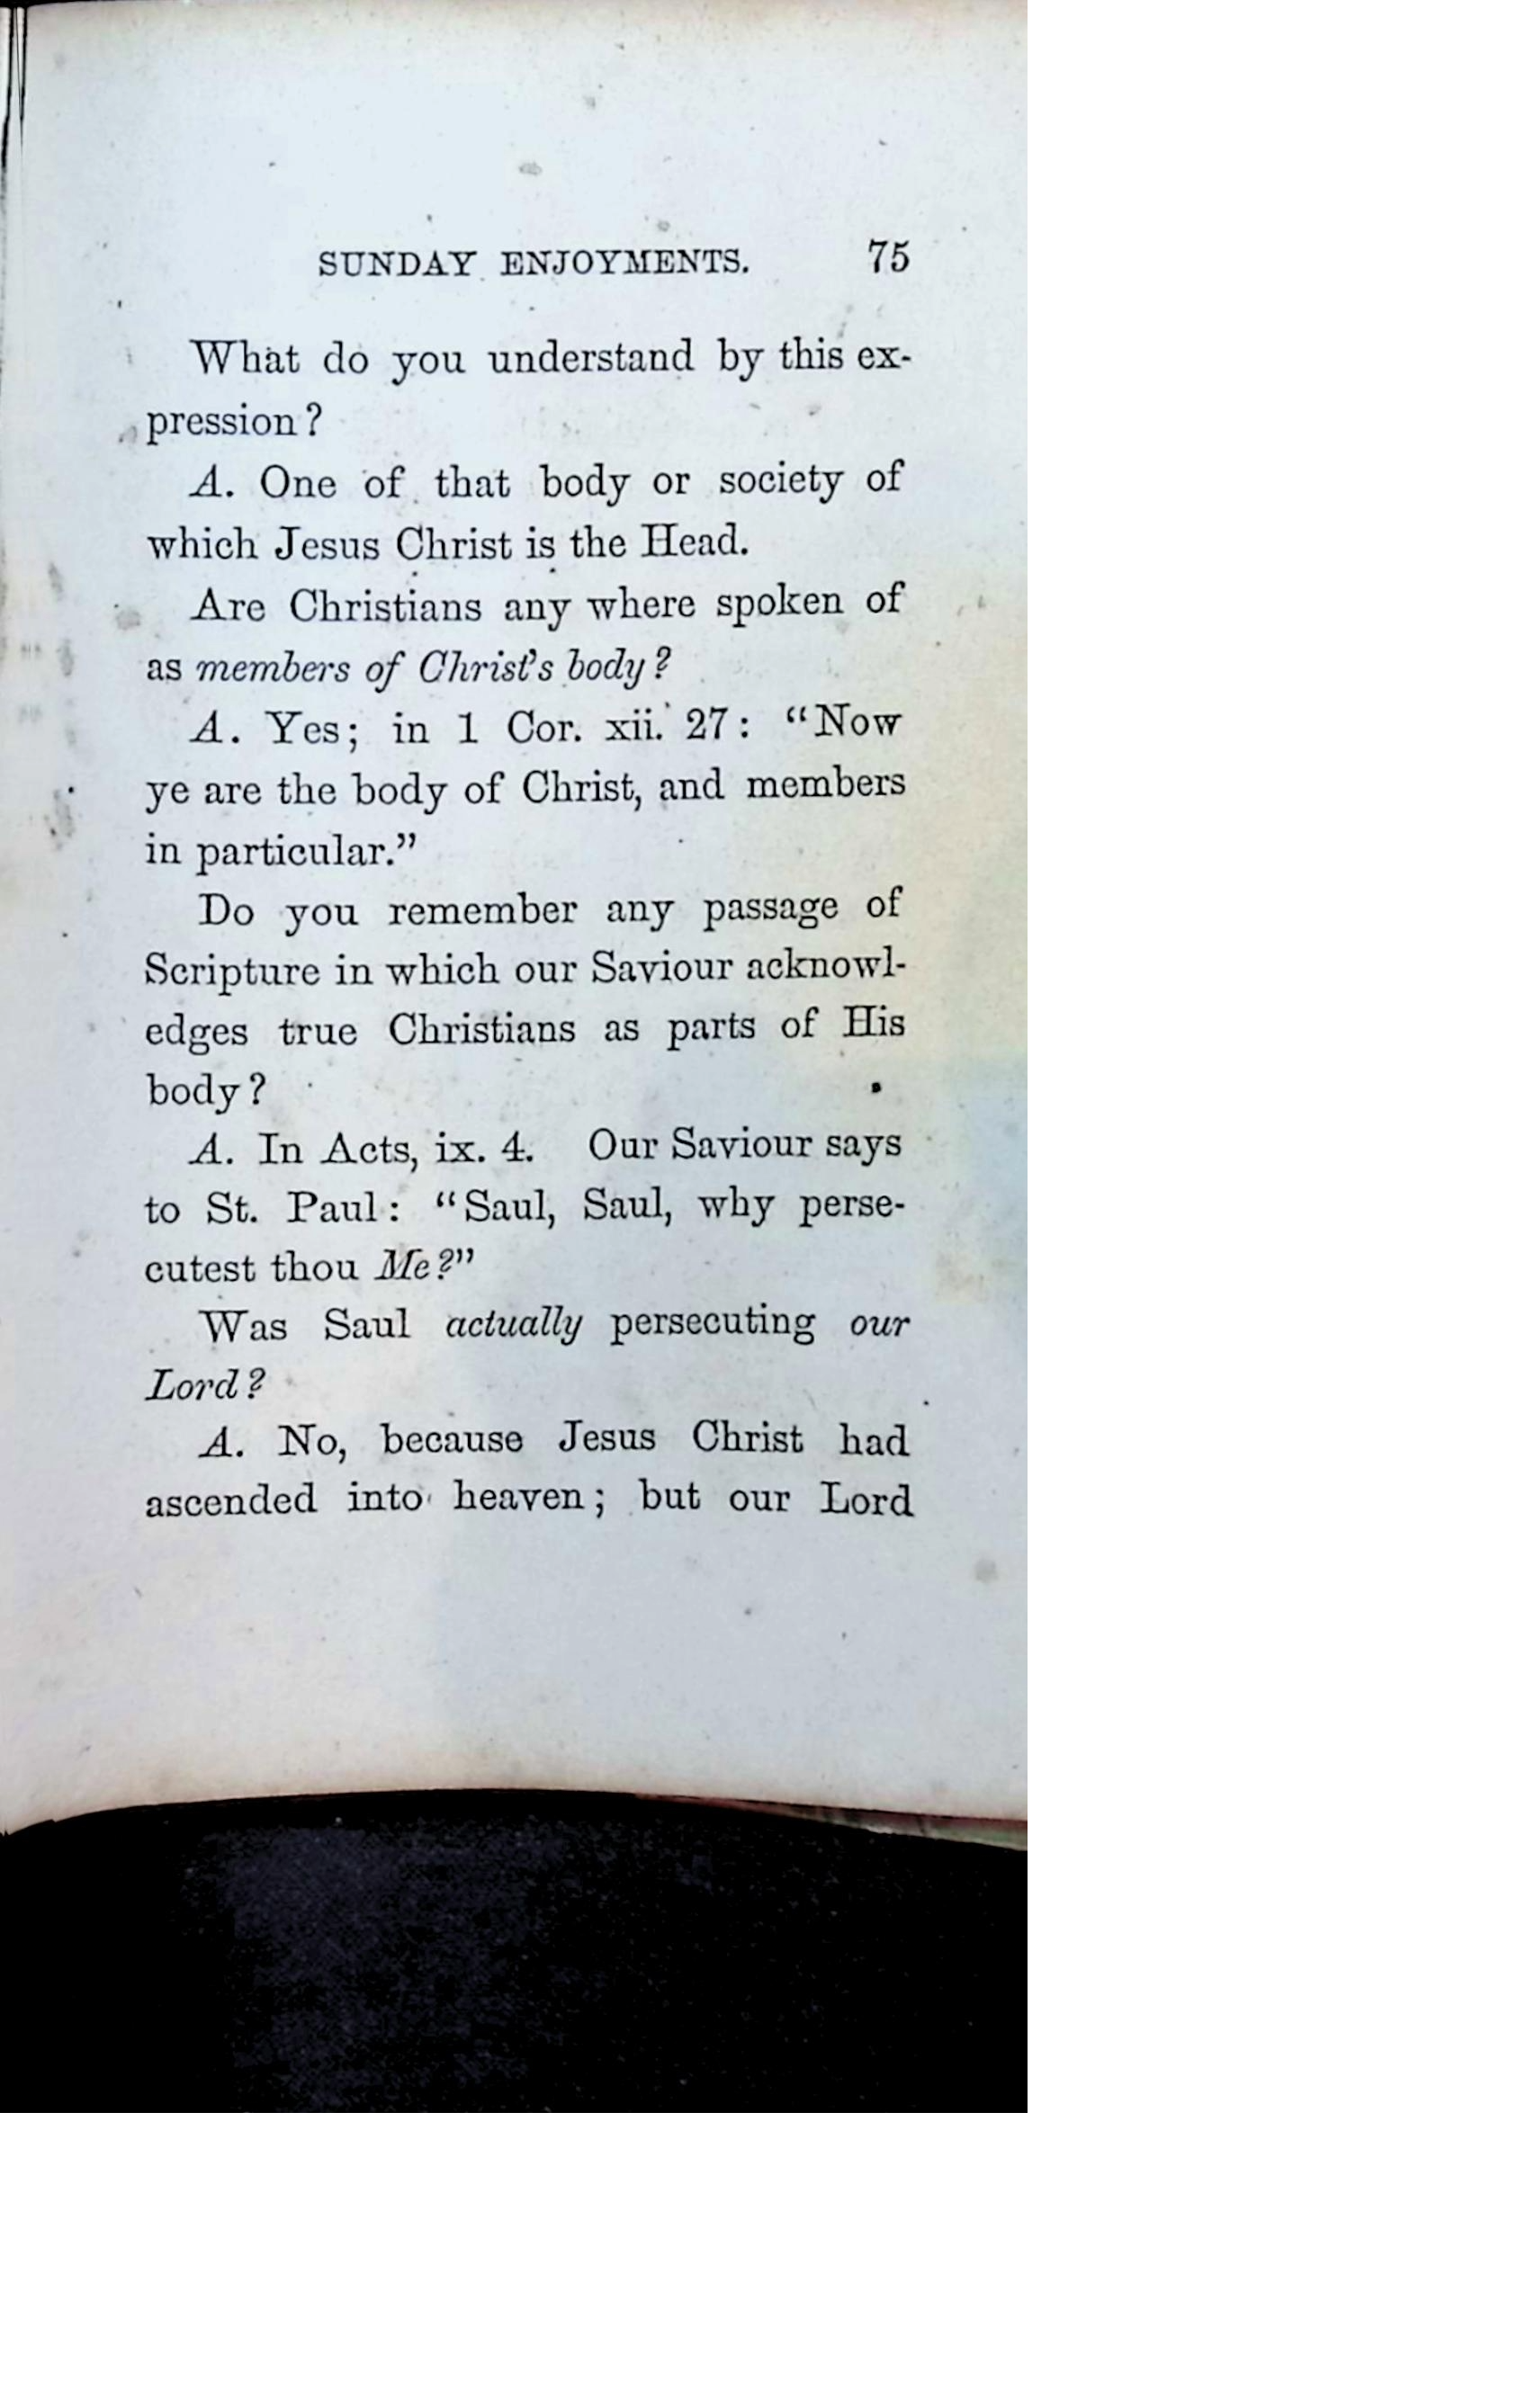 SUNDAY ENJOYMENTS. 75
What do you understand by this ex-
pression?
A. One of that body or society of
which Jesus Christ is the Head.
Are Christians any where spoken of
as members of Christ's body?
A. Yes; in 1 Cor. xii. 27: “Now
ye are the body of Christ, and members
in particular.”
Do you remember any passage of
Scripture in which our Saviour acknowl-
edges true Christians as parts of His
body?
A. In Acts, ix. 4. Our Saviour says
to St. Paul: “Saul, Saul, why perse-
cutest thou Me?”
Was Saul actually persecuting our
Lord?
A. No, because Jesus Christ had
ascended into heaven; but our Lord